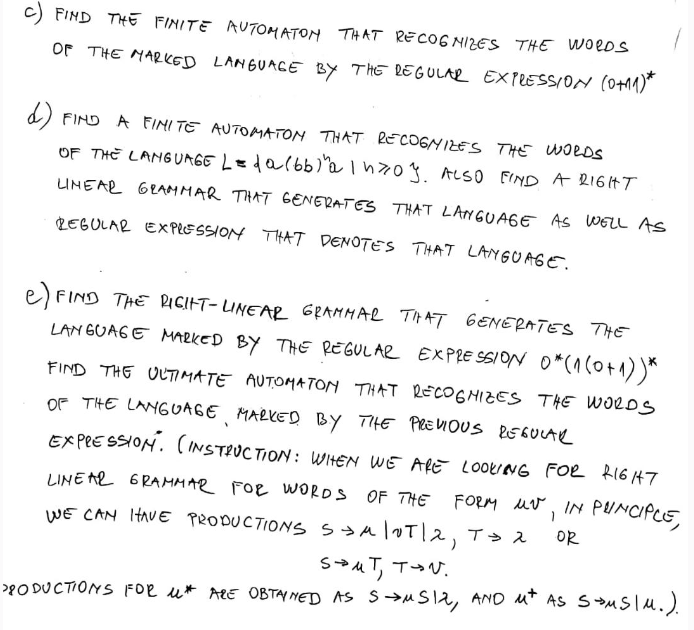 c) FIND THE FINITE AUTOMATON THAT RECOGNIZES THE WORDS
OF THE MARKED LANGUAGE BY THE REGULAR EXPRESSION (0+11)*
d) FIND A FINITE AUTOMATON THAT RECOGNIZES THE WORDS
OF THE LANGUAGE L = {a(bb)ⁿa | n≥0}. ALSO FIND A RIGHT
LINEAR GRAMMAR THAT GENERATES THAT LANGUAGE AS WELL AS
REGULAR EXPRESSION THAT DENOTES THAT LANGUAGE.
e) FIND THE RIGHT-LINEAR GRAMMAR THAT GENERATES THE
LANGUAGE MARKED BY THE REGULAR EXPRESSION 0*(1(0+1))*
FIND THE ULTIMATE AUTOMATON THAT RECOGNIZES THE WORDS
OF THE LANGUAGE, MARKED BY THE PREVIOUS REGULAR
EXPRESSION. (INSTRUCTION: WHEN WE ARE LOOKING FOR RIGHT
LINEAR GRAMMAR FOR WORDS OF THE FORM uv, IN PRINCIPLE,
WE CAN HAVE PRODUCTIONS S→u|vT|λ, T→λ OR
S→uT, T→v.
PRODUCTIONS FOR u* ARE OBTAINED AS S→uS|λ, AND u⁺ AS S→uS|u.).